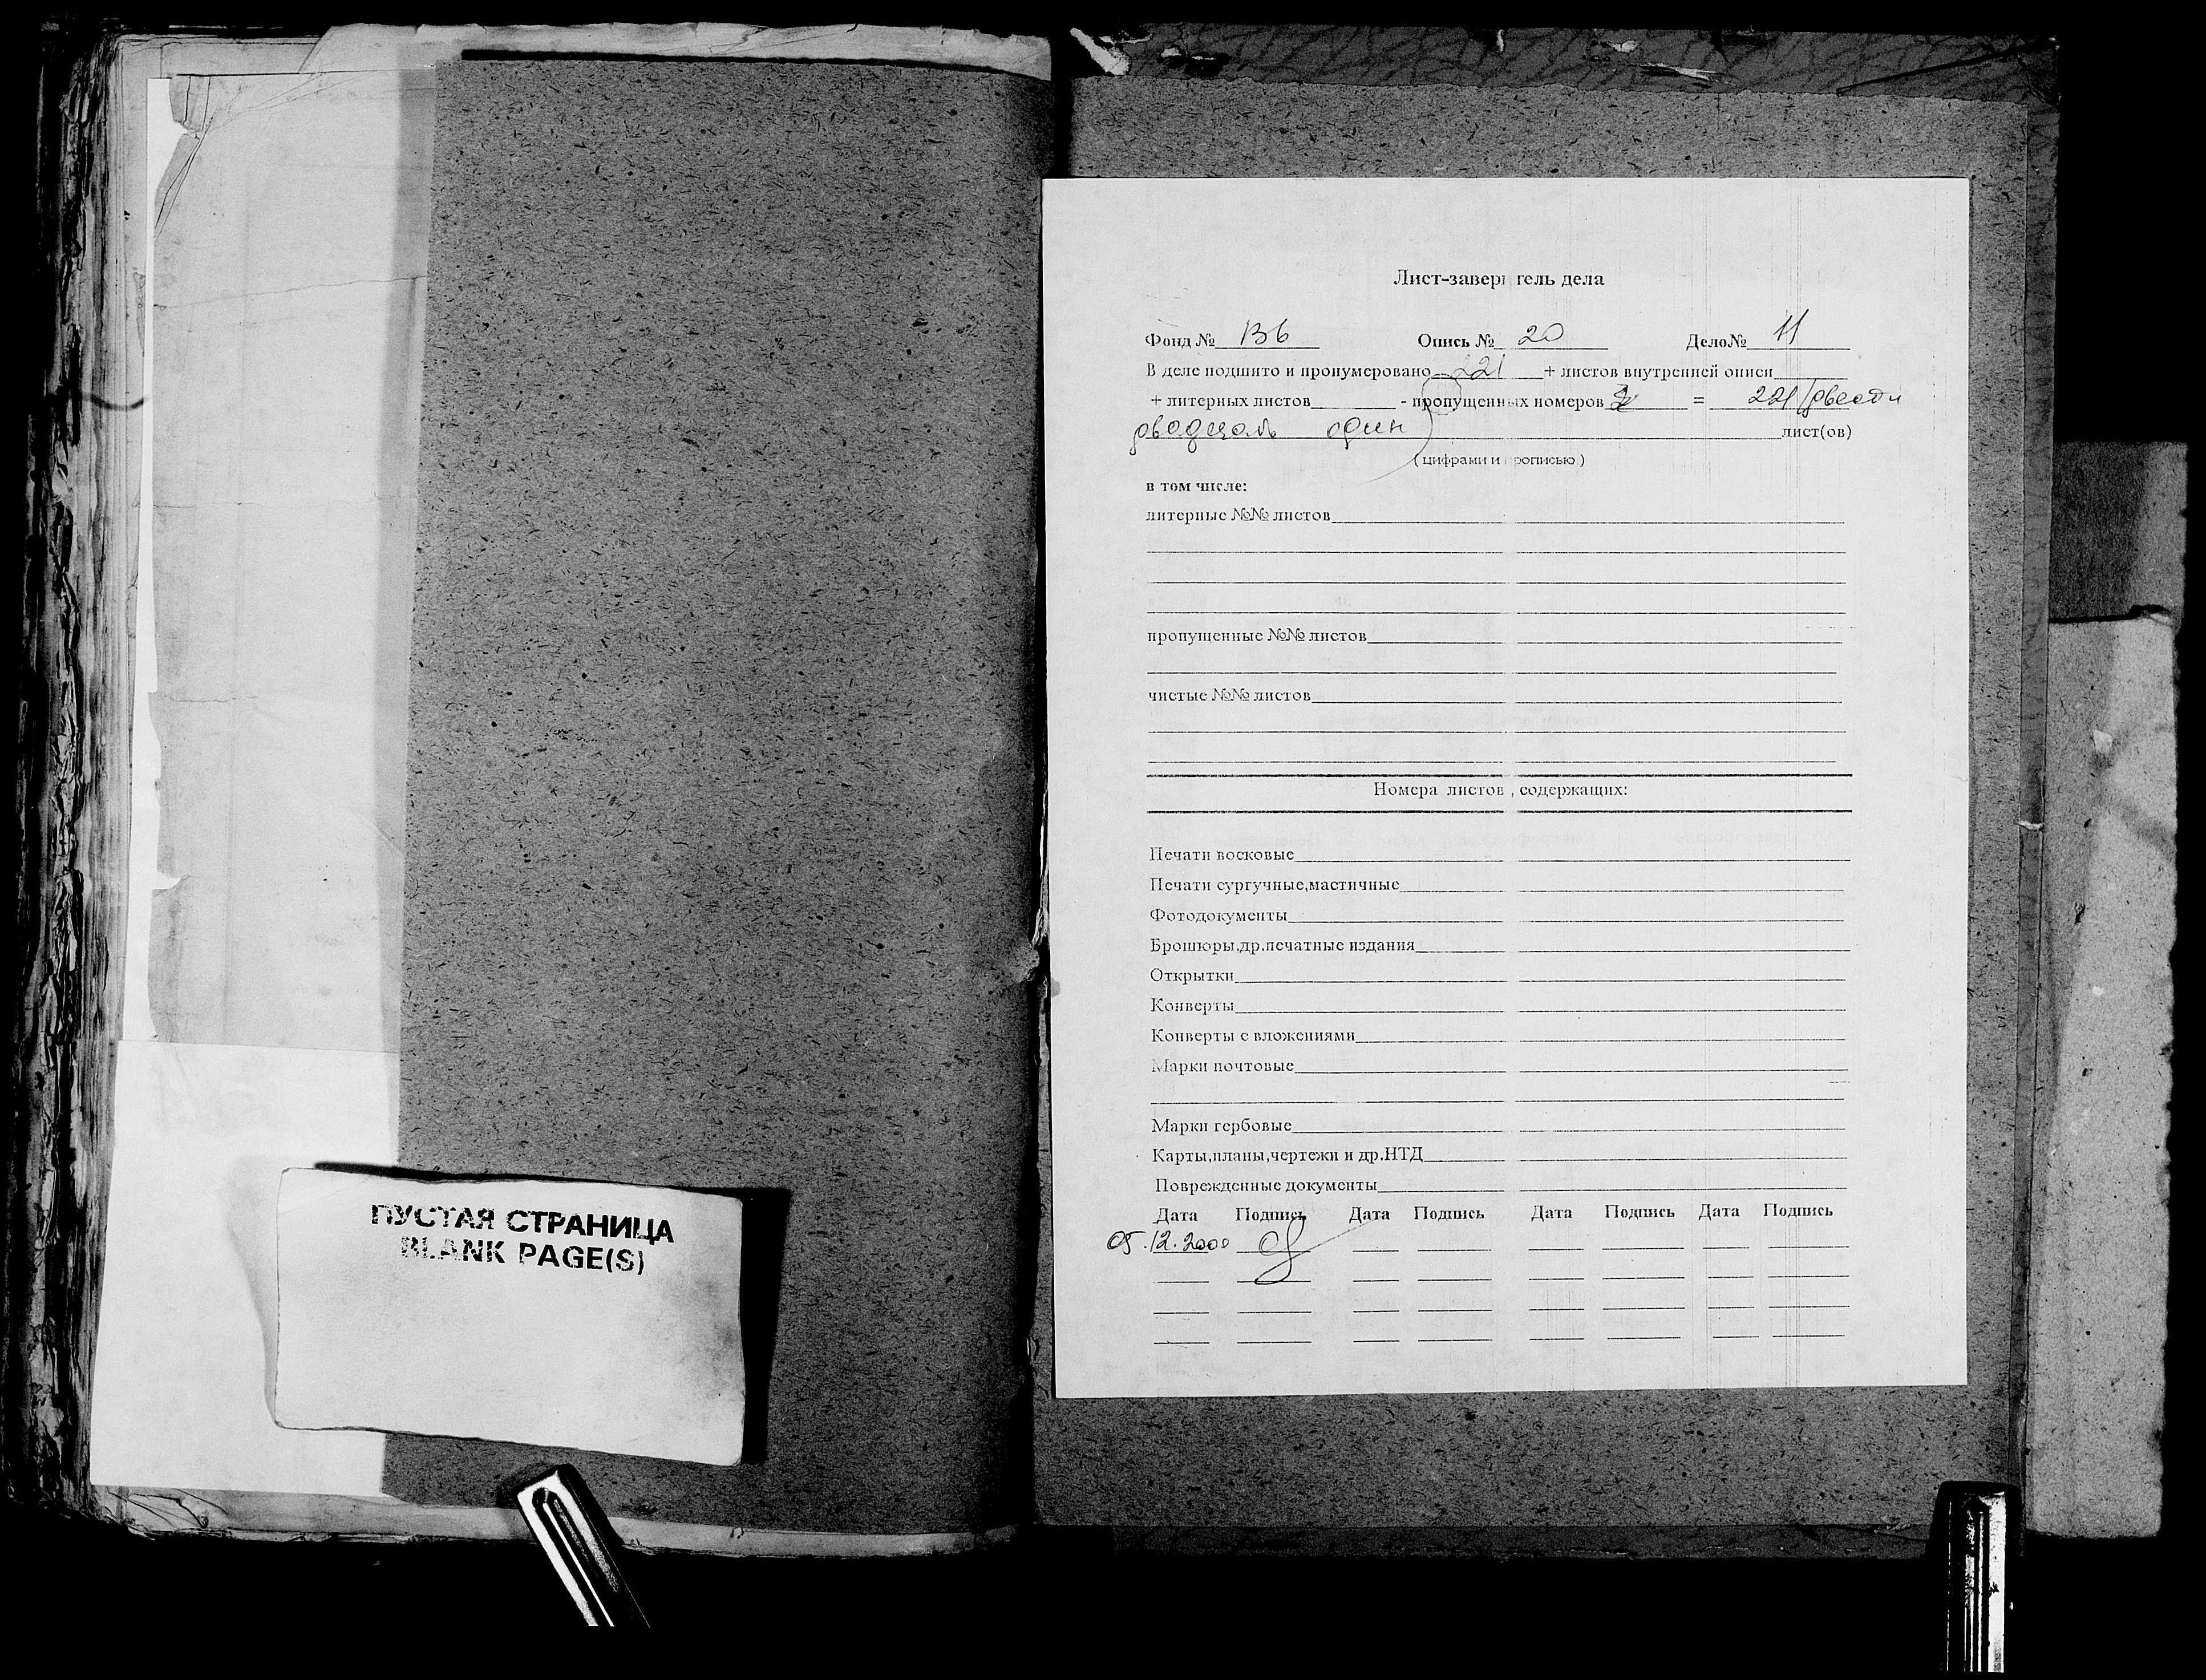 ПУСТАЯ СТРАНИЦА
BLANK PAGE(S)
Лист-заверитель дела
Фонд № 136 Опись № 20 Дело№ 11
В деле подшито и пронумеровано 221 + листов внутренней описи
+ литерных листов - пропущенных номеров = 221 (двести
двадцать один) лист(ов)
(цифрами и прописью)
в том числе:
литерные №№ листов
пропущенные №№ листов
чистые №№ листов
Номера листов, содержащих:
Печати восковые
Печати сургучные,мастичные
Фотодокументы
Брошюры,др.печатные издания
Открытки
Конверты
Конверты с вложениями
Марки почтовые
Марки гербовые
Карты,планы,чертежи и др.НТД
Поврежденные документы
Дата Подпись Дата Подпись Дата Подпись Дата Подпись
05.12.2000